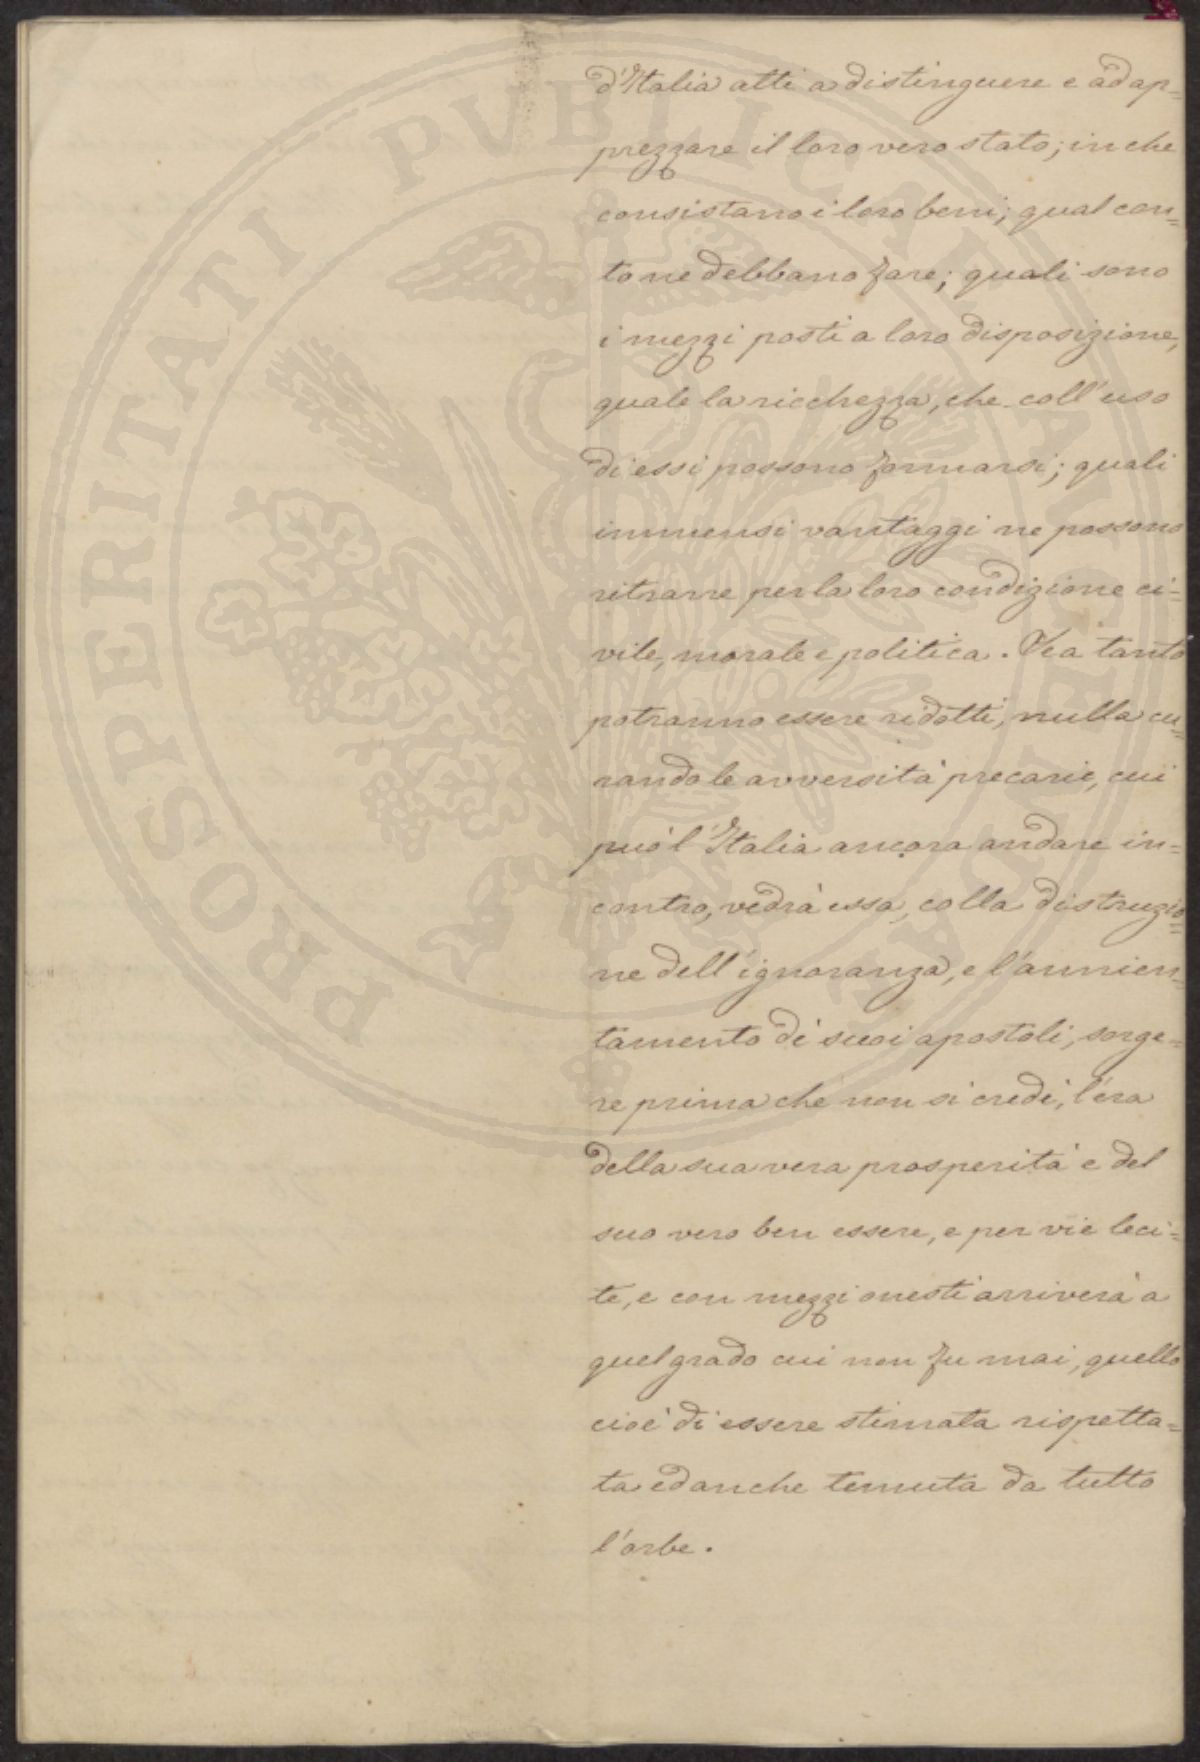 d'Italia atti a distinguere e ad ap=
prezzare il loro vero stato; in che
consistano i loro beni; qual con=
to ne debbano fare; quali sono
i mezzi posti a loro disposizione,
quale la ricchezza, che coll'uso
di essi possono formarsi; quali
immensi vantaggi ne possono
ritrarre per la loro condizione ci=
vile, morale e politica. Se a tanto
potranno essere ridotti, nulla cu=
rando le avversità precarie, cui
può l'Italia ancora andare in=
contro, vedrà essa, colla distruzio=
ne dell'ignoranza, e l'annien=
tamento di suoi apostoli, sorge=
re prima che non si credi, l'era
della sua vera prosperità e del
suo vero ben essere, e per vie leci=
te, e con mezzi onesti arriverà a
quel grado cui non fu mai, quello
cioè di essere stimata rispetta=
ta ed anche temuta da tutto
l'orbe.
PROSPERITATI PUBLICAE AUGENDAE